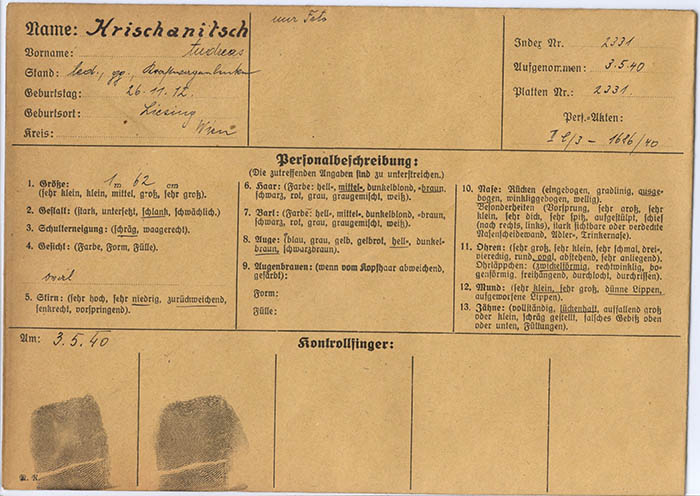 Name: Krischanitsch
Vorname: Andreas
Stand: led., gg., Kraftwagenlenker
Geburtstag: 26.11.12.
Geburtsort: Liesing
Kreis: Wien
nur Foto
Index Nr. 2331
Aufgenommen: 3.5.40
Platten Nr.: 2331.
Pers.-Akten:
1626/40
Personalbeschreibung:
(Die zutreffenden Angaben sind zu unterstreichen.)
1. Größe: 1 m 62 cm
(sehr klein, klein, mittel, groß, sehr groß).
2. Gestalt: (stark, untersetzt, schlank, schwächlich).
3. Schulterneigung: (schräg, waagerecht).
4. Gesicht: (Farbe, Form, Fülle).
oval
5. Stirn: (sehr hoch, sehr niedrig, zurückweichend,
senkrecht, vorspringend).
6. Haar: (Farbe: hell-, mittel-, dunkelblond, -braun,
schwarz, rot, grau, graugemischt, weiß).
7. Bart: (Farbe: hell-, mittel-, dunkelblond, -braun,
schwarz, rot, grau, graugemischt, weiß).
8. Auge: (blau, grau, gelb, gelbrot, hell-, dunkel-
braun, schwarzbraun).
9. Augenbrauen: (wenn vom Kopfhaar abweichend,
gefärbt):
Form:
Fülle:
10. Nase: Rücken (eingebogen, gradlinig, ausge-
bogen, winkliggebogen, wellig).
Besonderheiten (Vorsprung, sehr groß, sehr
klein, sehr dick, sehr spitz, aufgestülpt, schief
(nach rechts, links), stark sichtbare oder verdeckte
Nasenscheidewand, Adler-, Trinkernase).
11. Ohren: (sehr groß, sehr klein, sehr schmal, drei-,
viereckig, rund, oval, abstehend, sehr anliegend).
Ohrläppchen: (zwickelförmig, rechtwinklig, bo-
genförmig, freihängend, durchlocht, durchrissen).
12. Mund: (sehr klein, sehr groß, dünne Lippen,
aufgeworfene Lippen).
13. Zähne: (vollständig, lückenhaft, auffallend groß
oder klein, schräg gestellt, falsches Gebiß oben
oder unten, Füllungen).
Am: 3.5.40
Kontrollfinger: